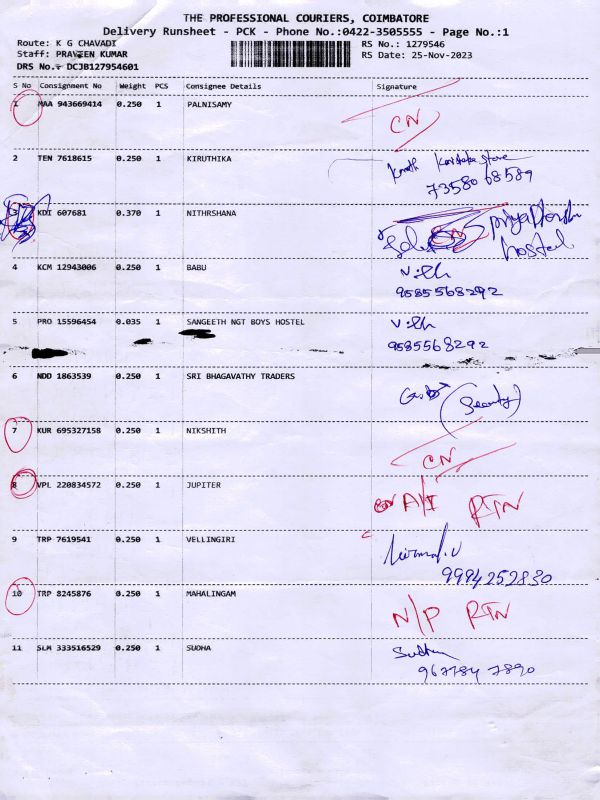 THE PROFESSIONAL COURIERS, COIMBATORE
Delivery Runsheet - PCK - Phone No.:0422-3505555 - Page No.:1
Route: K G CHAVADI RS No.: 1279546
Staff: PRAVEEN KUMAR RS Date: 25-Nov-2023
DRS No.- DCJB127954601
S No Consignment No Weight PCS Consignee Details Signature
1 MAA 943669414 0.250 1 PALNISAMY CN
2 TEN 7618615 0.250 1 KIRUTHIKA
73580 68589
3 KDI 607681 0.370 1 NITHRSHANA
hostel
4 KCM 12943006 0.250 1 BABU
9585568292
5 PRO 15596454 0.035 1 SANGEETH NGT BOYS HOSTEL
9585568292
6 NDD 1863539 0.250 1 SRI BHAGAVATHY TRADERS
7 KUR 695327158 0.250 1 NIKSHITH CN
8 VPL 220834572 0.250 1 JUPITER A/I RTN
9 TRP 7619541 0.250 1 VELLINGIRI
9994252830
10 TRP 8245876 0.250 1 MAHALINGAM N/P RTN
11 SLM 333516529 0.250 1 SUDHA
967784 7890